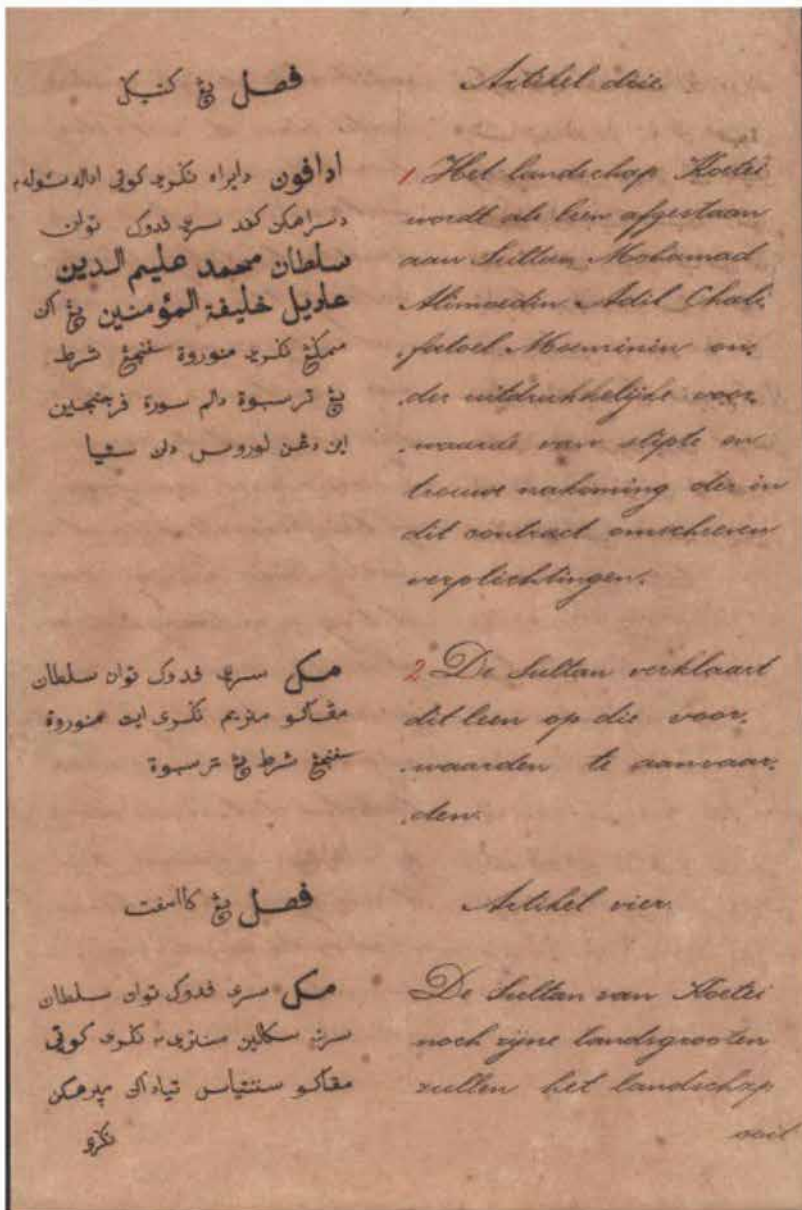 فصل يڠ كتيݢ
ادافون دايراه نݢري كوتي اداله
دسراهكن كفد سري فدوك توان
سلطان محمد عليم الدين
عاديل خليفة المؤمنين يڠ اكن
ممݢڠ نݢري منوروة سݢنڤ شرط
يڠ ترسبوة دالم سورة فرجنجين
اين دڠن لوروس دان ستيا
مك سري فدوك توان سلطان
مڠاكو منريم نݢري ايت منوروة
سݢنڤ شرط يڠ ترسبوة
فصل يڠ كاامفت
مك سري فدوك توان سلطان
سرت سكالين منتري٢ نݢري كوتي
مڠاكو سنتياس تياد اكن
نݢري
Artikel drie.
1 Het landschap Koetei
wordt als leen afgestaan
aan Sultan Mohamad
Alimoedin Adil Chali,
,fatoel Moeminin on,
,der uitdrukkelijke voor,
,waarde van stipte en
trouwe nakoming der in
dit contract omschreven
verplichtingen.
2 De Sultan verklaart
dit leen op die voor,
,waarden te aanvaar,
,den.
Artikel vier.
De Sultan van Koetei
noch zijne landsgrooten
zullen het landschap